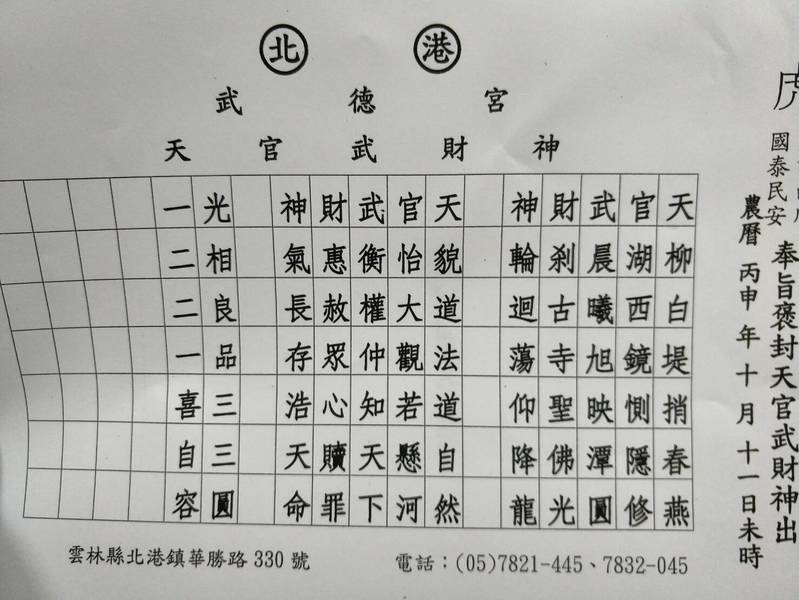 北港
武德宮
天官武財神
國泰民安
奉旨褒封天官武財神出
農曆丙申年十月十一日未時
天柳白堤捎春燕
官湖西鏡惻隱修
武晨曦旭映潭圓
財剎古寺聖佛光
神輪迴蕩仰降龍
天貌道法道自然
官怡大觀若懸河
武衡權仲知天下
財惠赦眾心贖罪
神氣長存浩天命
光相良品三三圓
一二二一喜自容
雲林縣北港鎮華勝路330號
電話：(05)7821-445、7832-045